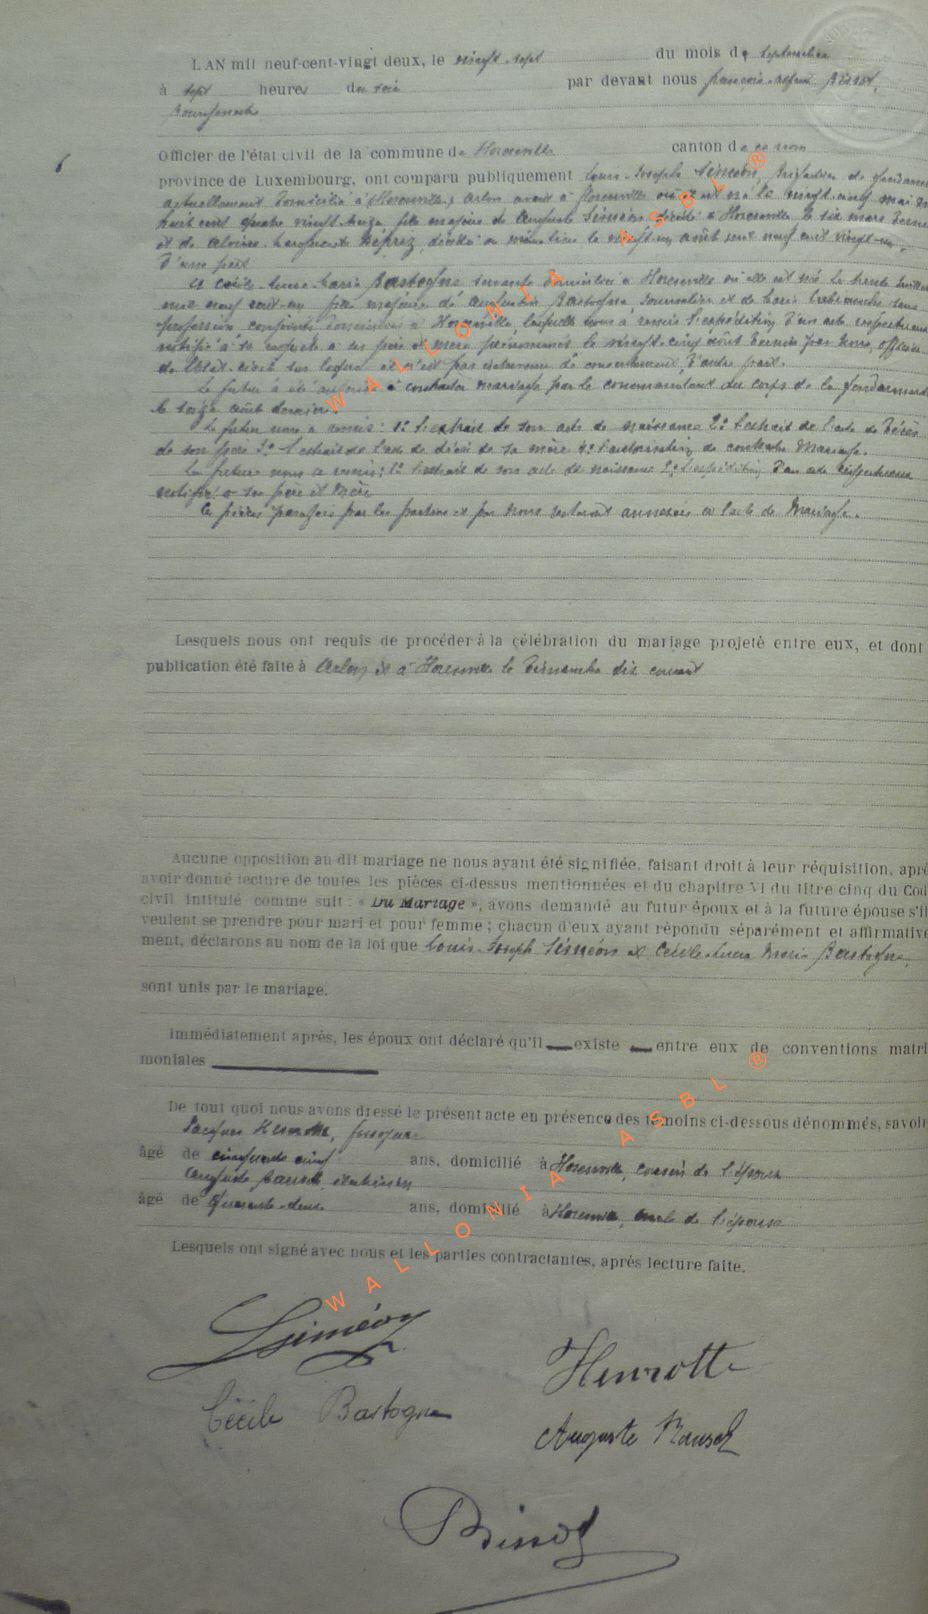 L'AN mil neuf-cent-vingt deux, le vingt-sept du mois de septembre
à sept heures du soir par devant nous françois- Bissot,
Bourgmestre
Officier de l'état civil de la commune de canton de ce nom
province de Luxembourg, ont comparu publiquement Louis-Joseph Siméon, de
actuellement domicilié à Arlon avant à où il est né le vingt-cinq mai
huit cent quatre vingt-seize fils majeur de Auguste Siméon décédé à le six mars
et de décédée le vingt-un août neuf cent vingt-un,
d'une part
Et Cécile-Lucie-Maria Bastogne servante domiciliée à où elle est née le trente juillet
mil neuf cent-un fille majeure de Augustin Bastogne journalier et de Maria sans
profession conjoints domiciliés à laquelle nous a remis l'expédition d'un acte respectueux
notifié à sa requête à ses père et mère prénommés le vingt-cinq août dernier par nous, officier
de l'état-civil sur lequel il n'est pas intervenu de consentement, d'autre part.
Le futur à été autorisé à contracter mariage par le commandant du corps de la gendarmerie
le seize août dernier.
Le futur nous a remis: 1° l'extrait de son acte de naissance 2° l'extrait de l'acte de décès
de son père 3° l'extrait de l'acte de décès de sa mère 4° l'autorisation de contracter Mariage.
La future nous a remis: 1° l'extrait de son acte de naissance 2° l'expédition d'un acte respectueux
notifié à ses père et mère
Ces pièces parafées par les parties et par nous resteront annexées à l'acte de Mariage.
Lesquels nous ont requis de procéder à la célébration du mariage projeté entre eux, et dont
publication été faite à Arlon et à le dimanche dix courant
Aucune opposition au dit mariage ne nous ayant été signifiée, faisant droit à leur réquisition, aprè
avoir donné lecture de toutes les pièces ci-dessus mentionnées et du chapitre VI du titre cinq du Cod
civil intitulé comme suit : « Du Mariage », avons demandé au futur époux et à la future épouse s'il
veulent se prendre pour mari et pour femme ; chacun d'eux ayant répondu séparément et affirmative
ment, déclarons au nom de la loi que Louis-Joseph Siméon et Cécile-Lucie Maria Bastogne,
sont unis par le mariage.
Immédiatement après, les époux ont déclaré qu'il existe entre eux de conventions matri
moniales
De tout quoi nous avons dressé le présent acte en présence des témoins ci-dessous dénommés, savoir
Jacques Henrotte,
âgé de cinquante cinq ans, domicilié à cousin de l'épouse
Auguste Rausch,
âgé de quarante-deux ans, domicilié à oncle de l'épouse
Lesquels ont signé avec nous et les parties contractantes, après lecture faite.
LSiméon
Henrotte
Cécile Bastogne
Auguste Rausch
Bissot
WALLONIA ASBL ®
WALLONIA ASBL ®